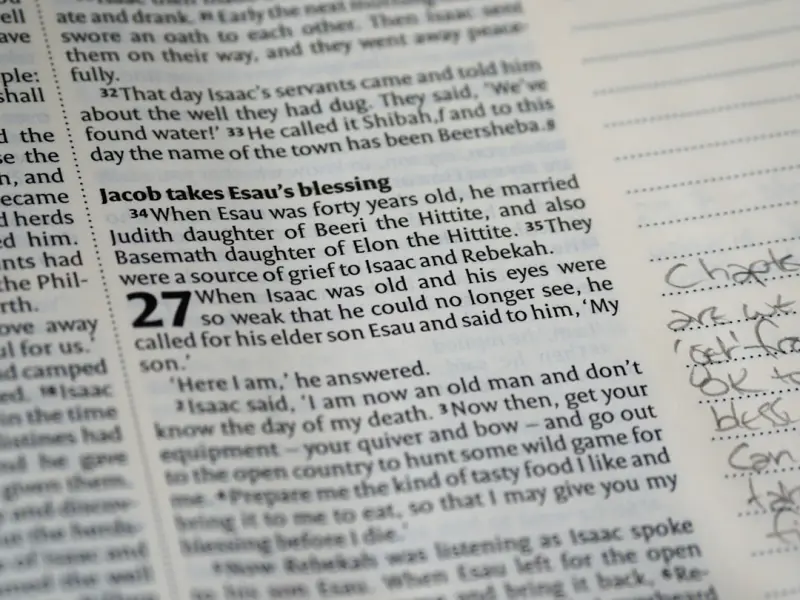 ell
ave
ple:
shall
d the
se the
n, and
ecame
d herds
ed him.
nts had
the Phil-
rth.
ove away
ul for us.'
d camped
ed. 18 Isaac
in the time
listines had
he gave
given them.
ate and drank. 31 Early the next morning
swore an oath to each other. Then Isaac sent
them on their way, and they went away peace-
fully.
32 That day Isaac's servants came and told him
about the well they had dug. They said, 'We've
found water!' 33 He called it Shibah,f and to this
day the name of the town has been Beersheba.g
Jacob takes Esau's blessing
34 When Esau was forty years old, he married
Judith daughter of Beeri the Hittite, and also
Basemath daughter of Elon the Hittite. 35 They
were a source of grief to Isaac and Rebekah.
27 When Isaac was old and his eyes were
so weak that he could no longer see, he
called for his elder son Esau and said to him, 'My
son.'
'Here I am,' he answered.
2 Isaac said, 'I am now an old man and don't
know the day of my death. 3 Now then, get your
equipment – your quiver and bow – and go out
to the open country to hunt some wild game for
me. 4 Prepare me the kind of tasty food I like and
bring it to me to eat, so that I may give you my
blessing before I die.'
5 Now Rebekah was listening as Isaac spoke
to his son Esau. When Esau left for the open
and bring it back, 6 Re-
are
OK to
bless
Can